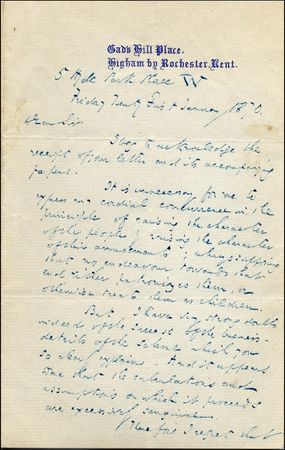 Gad's Hill Place,
Higham by Rochester, Kent.
5 Hyde Park Place W
Friday Twenty First January 1870.
Dear Sir
I beg to acknowledge the
receipt of your letter and its accompanying
papers.
It is unnecessary for me to
express my cordial concurrence in the
principle of raising the character
of the people by raising the character
of their amusements; always supposing
that no endeavour towards that
end either patronizes them, or
otherwise treats them as children.
But I have very strong doubts
indeed of the success of the business-
details of the scheme which you
so clearly explain. And it appears
to me that the calculations and
assumptions on which it proceeds
are excessively sanguine.
I therefore regret that